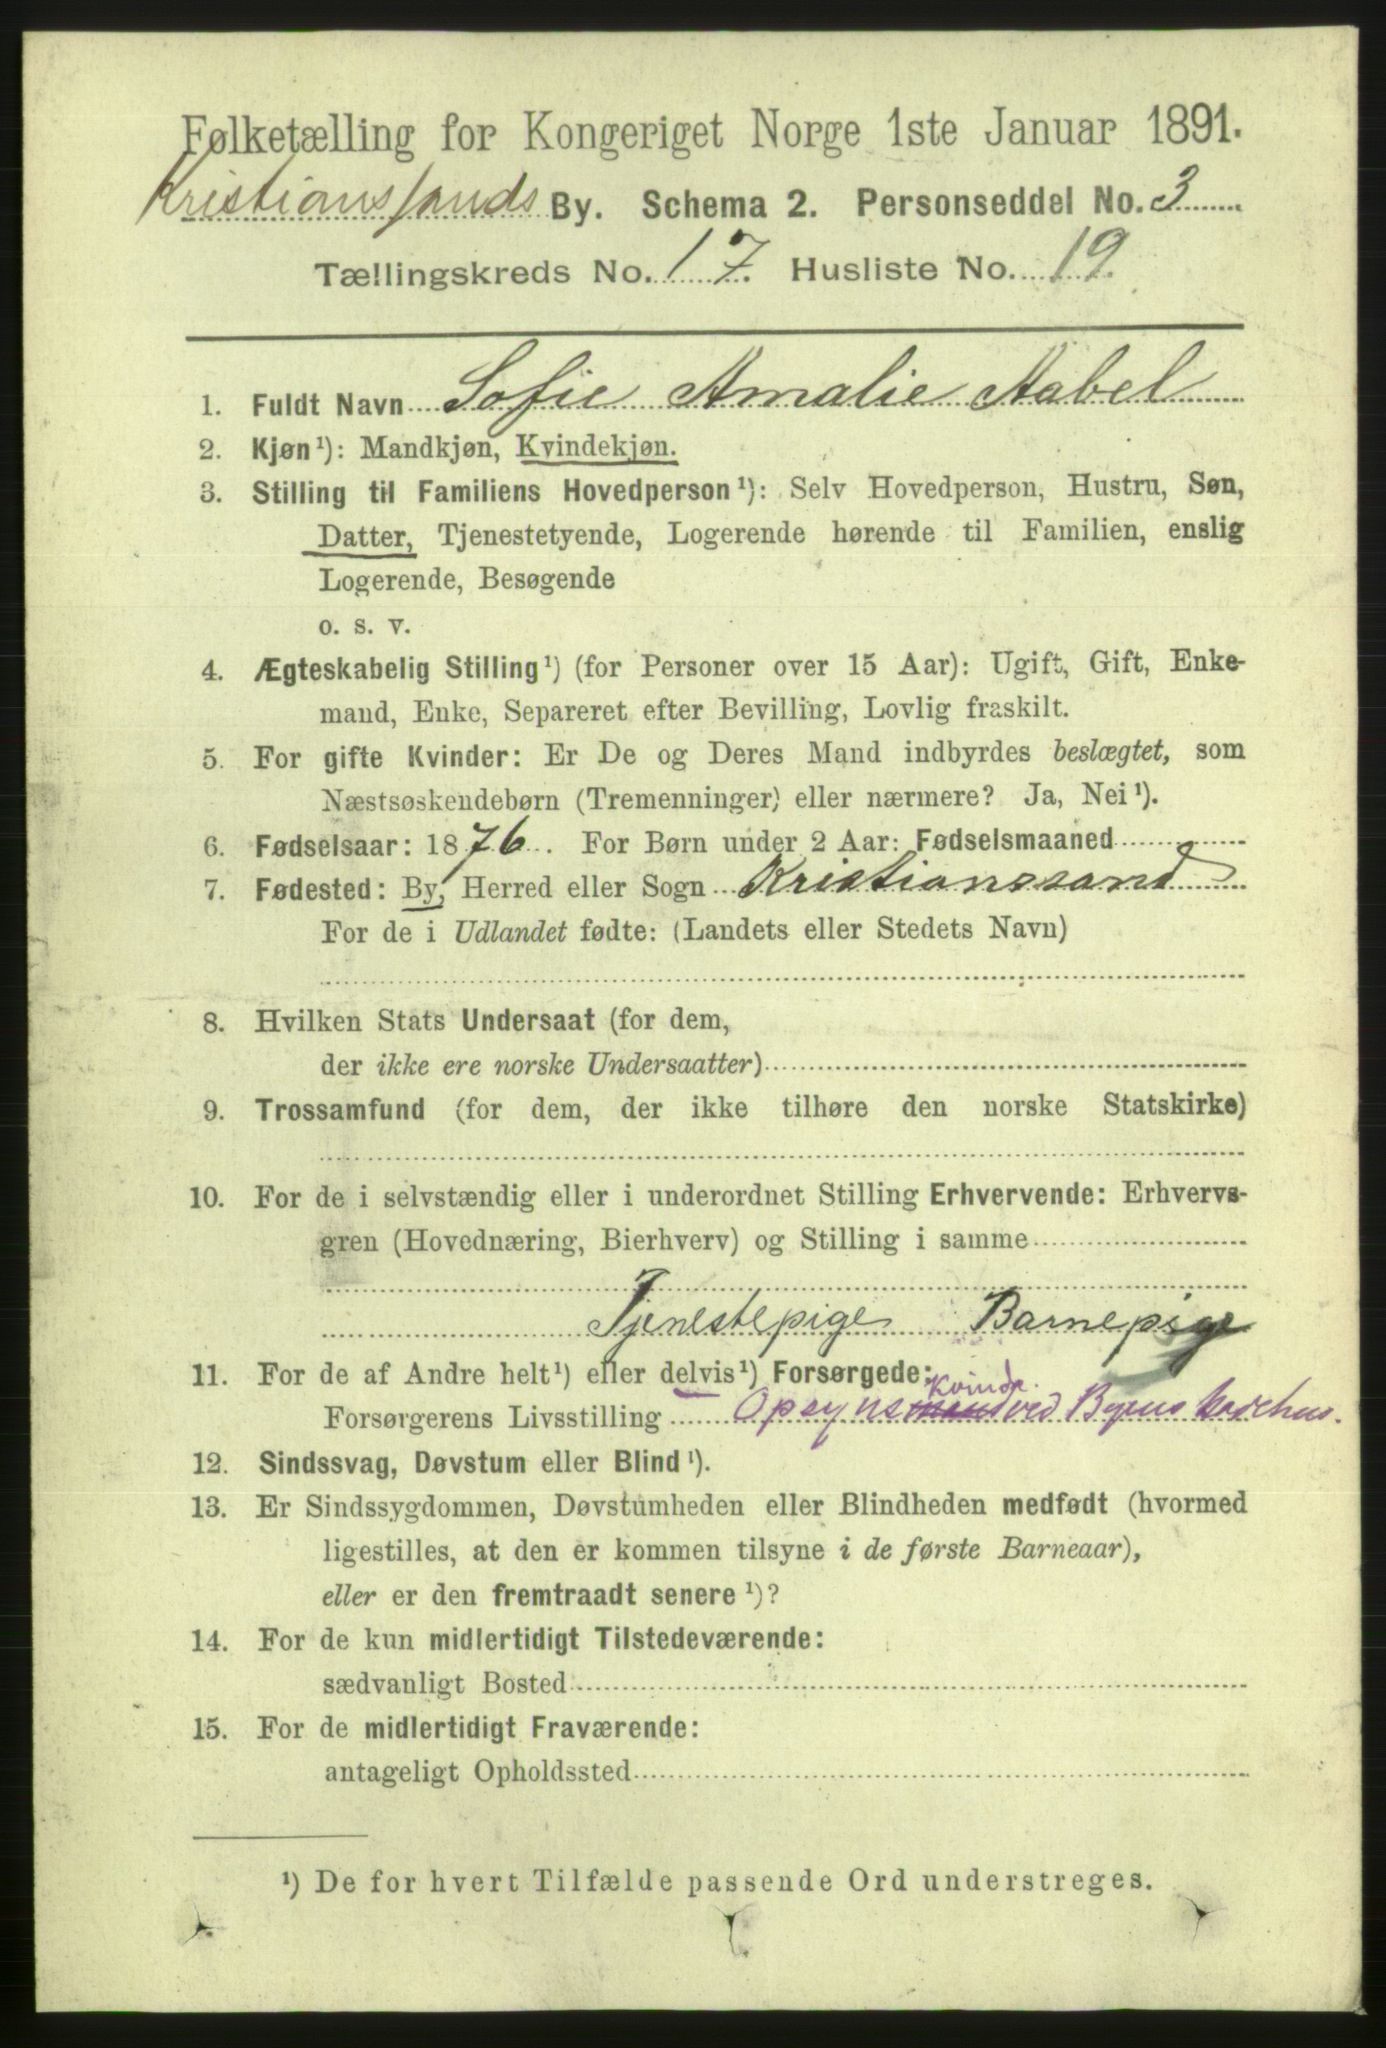 Folketælling for Kongeriget Norge 1ste Januar 1891.
Kristianssands By. Schema 2. Personseddel No. 3
Tællingskreds No. 17. Husliste No. 19.
1. Fuldt Navn Sofie Amalie Aabel
2. Kjøn¹): Mandkjøn, Kvindekjøn.
3. Stilling til Familiens Hovedperson¹): Selv Hovedperson, Hustru, Søn,
Datter, Tjenestetyende, Logerende hørende til Familien, enslig
Logerende, Besøgende
o. s. v.
4. Ægteskabelig Stilling¹) (for Personer over 15 Aar): Ugift, Gift, Enke-
mand, Enke, Separeret efter Bevilling, Lovlig fraskilt.
5. For gifte Kvinder: Er De og Deres Mand indbyrdes beslægtet, som
Næstsøskendebørn (Tremenninger) eller nærmere? Ja, Nei¹).
6. Fødselsaar: 1876. For Børn under 2 Aar: Fødselsmaaned
7. Fødested: By, Herred eller Sogn Kristianssand
For de i Udlandet fødte: (Landets eller Stedets Navn)
8. Hvilken Stats Undersaat (for dem,
der ikke ere norske Undersaatter)
9. Trossamfund (for dem, der ikke tilhøre den norske Statskirke)
10. For de i selvstændig eller i underordnet Stilling Erhvervende: Erhvervs-
gren (Hovednæring, Bierhverv) og Stilling i samme
Tjenestepige Barnepige
11. For de af Andre helt¹) eller delvis¹) Forsørgede:
Kvinde.
Forsørgerens Livsstilling Opsynsmand ved Byens
12. Sindssvag, Døvstum eller Blind¹).
13. Er Sindssygdommen, Døvstumheden eller Blindheden medfødt (hvormed
ligestilles, at den er kommen tilsyne i de første Barneaar),
eller er den fremtraadt senere¹)?
14. For de kun midlertidigt Tilstedeværende:
sædvanligt Bosted
15. For de midlertidigt Fraværende:
antageligt Opholdssted
¹) De for hvert Tilfælde passende Ord understreges.